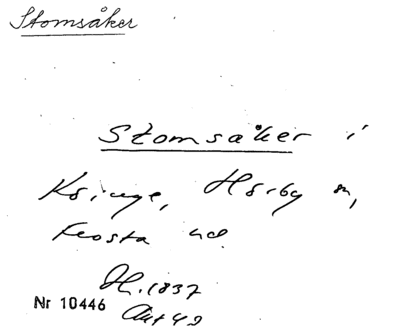 Stomsåker
Stomsåker i
Ksinge, Hörby sn,
Frosta hd
H. 1837
Nr 10446
Akt 49